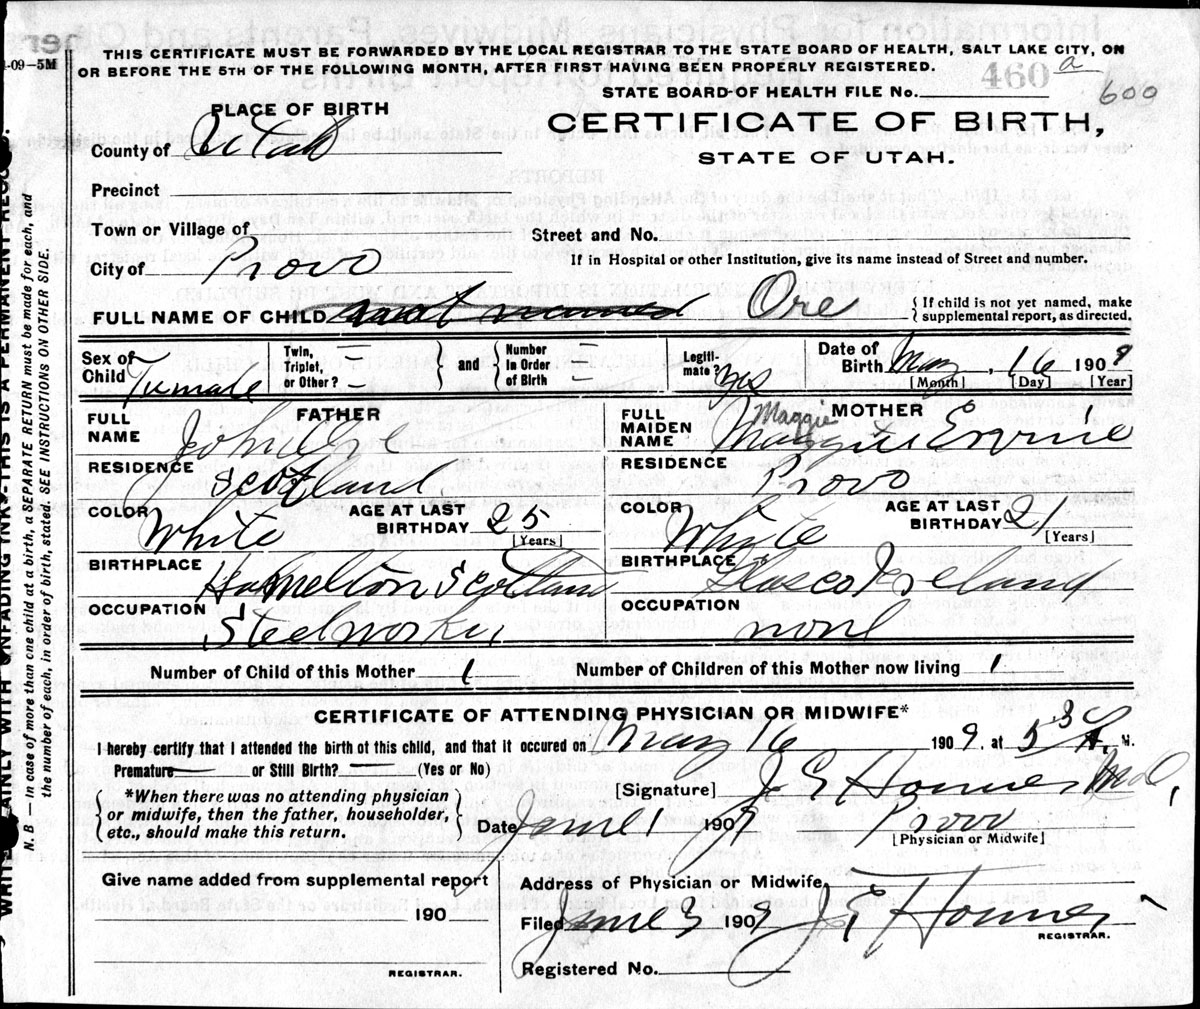 THIS CERTIFICATE MUST BE FORWARDED BY THE LOCAL REGISTRAR TO THE STATE BOARD OF HEALTH, SALT LAKE CITY, ON
OR BEFORE THE 5TH OF THE FOLLOWING MONTH, AFTER FIRST HAVING BEEN PROPERLY REGISTERED.
-09-5M
460 a
STATE BOARD OF HEALTH FILE No.
600
PLACE OF BIRTH
CERTIFICATE OF BIRTH,
STATE OF UTAH.
County of Utah
Precinct
Town or Village of
Street and No.
City of Provo
If in Hospital or other Institution, give its name instead of Street and number.
FULL NAME OF CHILD not named Ore { If child is not yet named, make supplemental report, as directed.
Sex of Child Female
Twin, Triplet, or Other? } and { Number in Order of Birth
Legitimate? Yes
Date of Birth May, 16 1909
[Month] [Day] [Year]
FULL NAME FATHER John Ore
FULL MAIDEN NAME MOTHER Maggie
Maggie
RESIDENCE Scotland
RESIDENCE Provo
COLOR White AGE AT LAST BIRTHDAY 25 [Years]
COLOR White AGE AT LAST BIRTHDAY 21 [Years]
BIRTHPLACE Hamelton Scotland
BIRTHPLACE Glasco
OCCUPATION Steelworker
OCCUPATION none
Number of Child of this Mother 1
Number of Children of this Mother now living 1
CERTIFICATE OF ATTENDING PHYSICIAN OR MIDWIFE*
I hereby certify that I attended the birth of this child, and that it occured on May 16 1909. at 5 30 A. M.
Premature or Still Birth? (Yes or No)
[Signature] J. E. M.D.
*When there was no attending physician
or midwife, then the father, householder,
etc., should make this return.
Date June 1 1909 Provo
[Physician or Midwife]
Give name added from supplemental report
190
REGISTRAR.
Address of Physician or Midwife
Filed June 3 1909 J E
REGISTRAR.
Registered No.
N. B.— In case of more than one child at a birth, a SEPARATE RETURN must be made for each, and
the number of each, in order of birth, stated. SEE INSTRUCTIONS ON OTHER SIDE.
UNFADING INK-THIS IS A PERMANENT